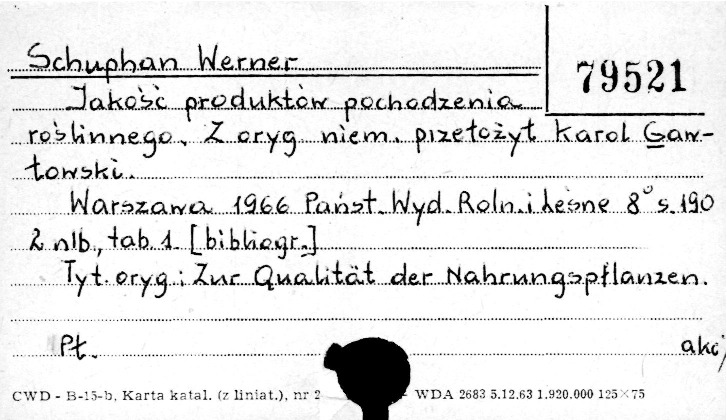 Schuphan Werner
79521
Jakość produktów pochodzenia
roślinnego. Z oryg niem. przełożył Karol Gaw-
łowski.
Warszawa 1966 Państ. Wyd. Roln. i Leśne 8° s. 190
2 nlb., tab 1. [bibliogr.]
Tyt. oryg: Zur Qualität der Nahrungspflanzen.
Pł. akc
CWD - B-15-b, Karta katal. (z liniat.), nr 2 - WDA 2683 5.12.63 1.920.000 125×75